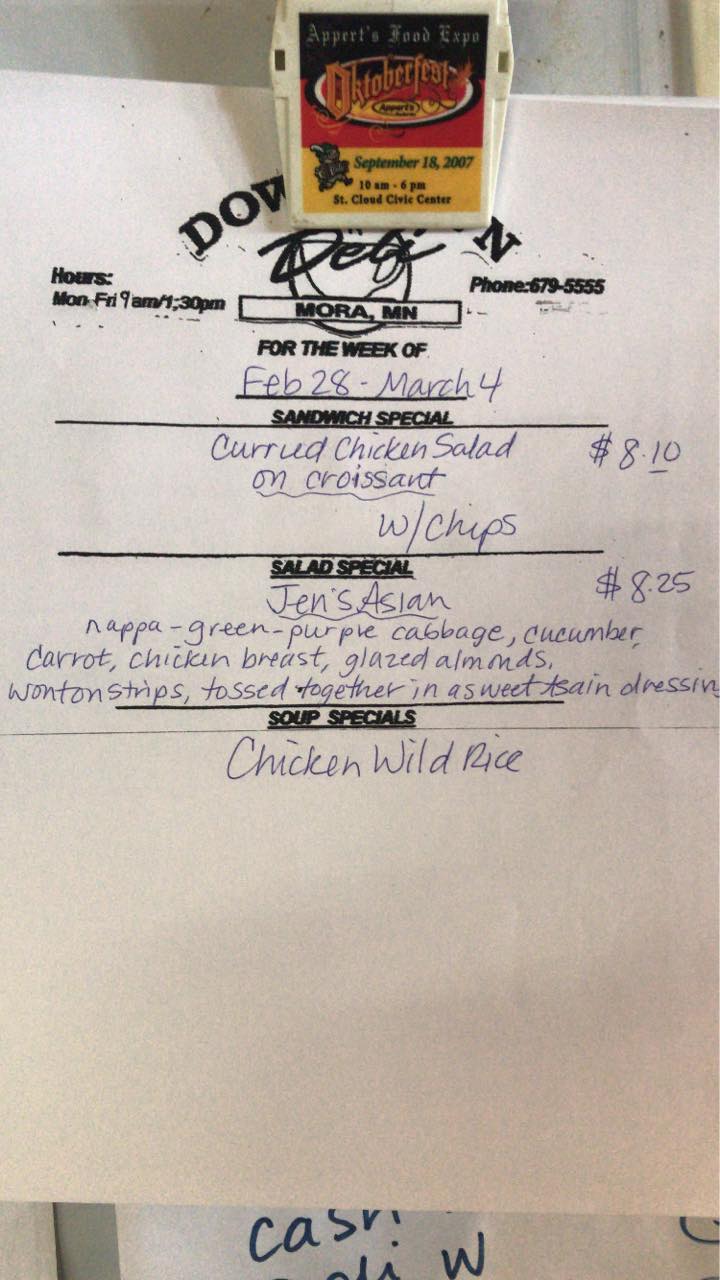 Appert's Food Expo
Oktoberfest
Appert's
September 18, 2007
10 am - 6 pm
St. Cloud Civic Center
DOW N
Deli
Hours:
Mon-Fri 9am/1;30pm
Phone:679-5555
MORA, MN
FOR THE WEEK OF
Feb 28 - March 4
SANDWICH SPECIAL
Curried Chicken Salad $8.10
on croissant
w/Chips
SALAD SPECIAL
$8.25
Jen's Asian
nappa-green-purple cabbage, cucumber,
carrot, chicken breast, glazed almonds,
wonton strips, tossed together in a sweet asain dressin
SOUP SPECIALS
Chicken Wild Rice
cash
w